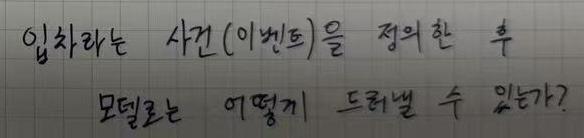 입차라는 사건(이벤트)을 정의한 후
모델로는 어떻게 드러낼 수 있는가?